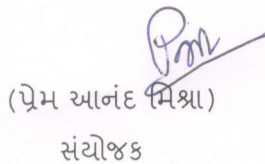 (પ્રેમ આનંદ મિશ્રા)
સંયોજક